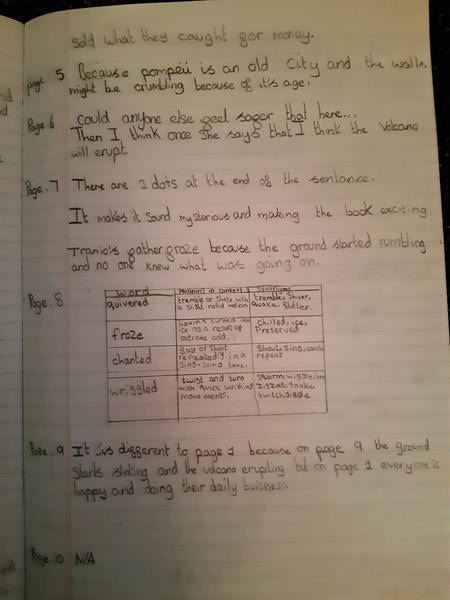 sold what they caught gor money.
page 5 Because pompeii is an old city and the walls
might be crumbling because of it's age.
Page. 6 could anyone else geel sager that here...
Then I think once she says that I think the Volcano
will erupt
Page. 7 There are 3 dots at the end of the sentence.
It makes it sound mysterious and making the book exciting.
Tranio's gather groze because the ground started rumbling
and no one knew what was going on.
Page. 8
word Meaning in context Synonyms
quivered tremble or shake with a slight rapid motion tremble, Shiver, quake, flutter.
froze having turned into ice as a result of extreme cold. Chilled, ice, Preserved
chanted Say or shout repeatedly in a Sing-song tone. Shout, Sing, repeat
wriggled twist and turn with quick writhing movement. squirm, wiggle, zigzag, snake, twitch, jiggle
Page. 9 It is diggerent to page 1 because on page 9 the ground
starts shaking and the volcano erupting but on page 1 everyone is
happy and doing their daily buisness
Page 10 N/A